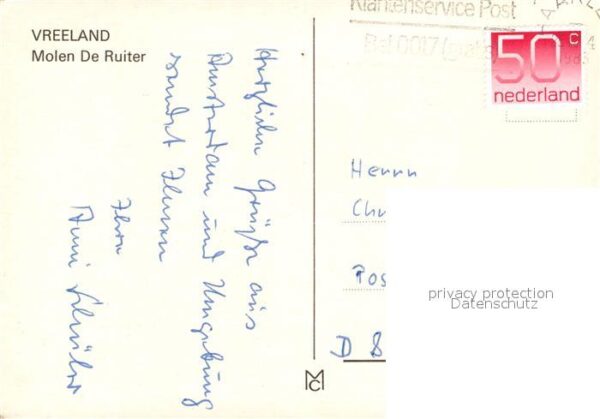 VREELAND
Molen De Ruiter
Herzliche Grüße aus
Amsterdam und Umgebung
sendet Ihnen
Ihre
Klantenservice Post
Bel 0017
50 c
nederland
Herrn
Pos
D 8
MC
privacy protection
Datenschutz